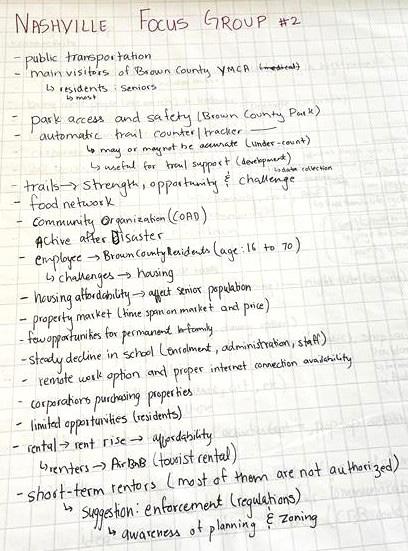 NASHVILLE FOCUS GROUP #2
- public transportation
- main visitors of Brown County YMCA (medical)
↳ residents : seniors
↳ most
- park access and safety (Brown County Park)
- automatic trail counter/tracker
↳ may or may not be accurate (under-count)
↳ useful for trail support (development)
↳ data collection
- trails → strength, opportunity & challenge
- food network
- Community Organization (COAD)
Active after Disaster
- employee → Brown County Residents (age: 16 to 70)
↳ challenges → housing
- housing affordability → affect senior population
- property market (time span on market and price)
- few opportunities for permanent
- steady decline in school (enrolment, administration, staff)
- remote work option and proper internet connection availability
- corporations purchasing properties
- limited opportunities (residents)
- rental → rent rise → affordability
↳ renters → AirBnB (tourist rental)
- short-term rentors (most of them are not authorized)
↳ suggestion: enforcement (regulations)
↳ awareness of planning & zoning